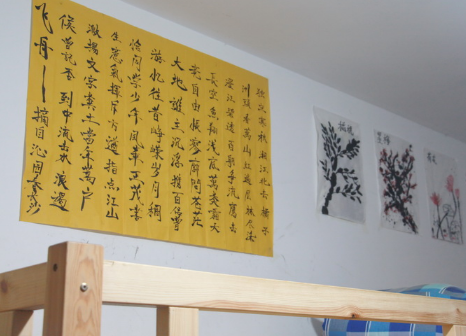 独立寒秋湘江北去橘子
洲頭看萬山紅遍層林尽染
漫江碧透百舸争流鷹击
長空魚翔浅底萬類霜天
竞自由悵寥廓問苍茫
大地誰主沉浮携来百侣曾
游忆往昔峥嵘岁月稠
恰同学少年風華正茂書
生意氣揮斥方遒指点江山
激揚文字糞土當年萬户
侯曾記否到中流击水浪遏
飞舟——摘自沁园春長沙